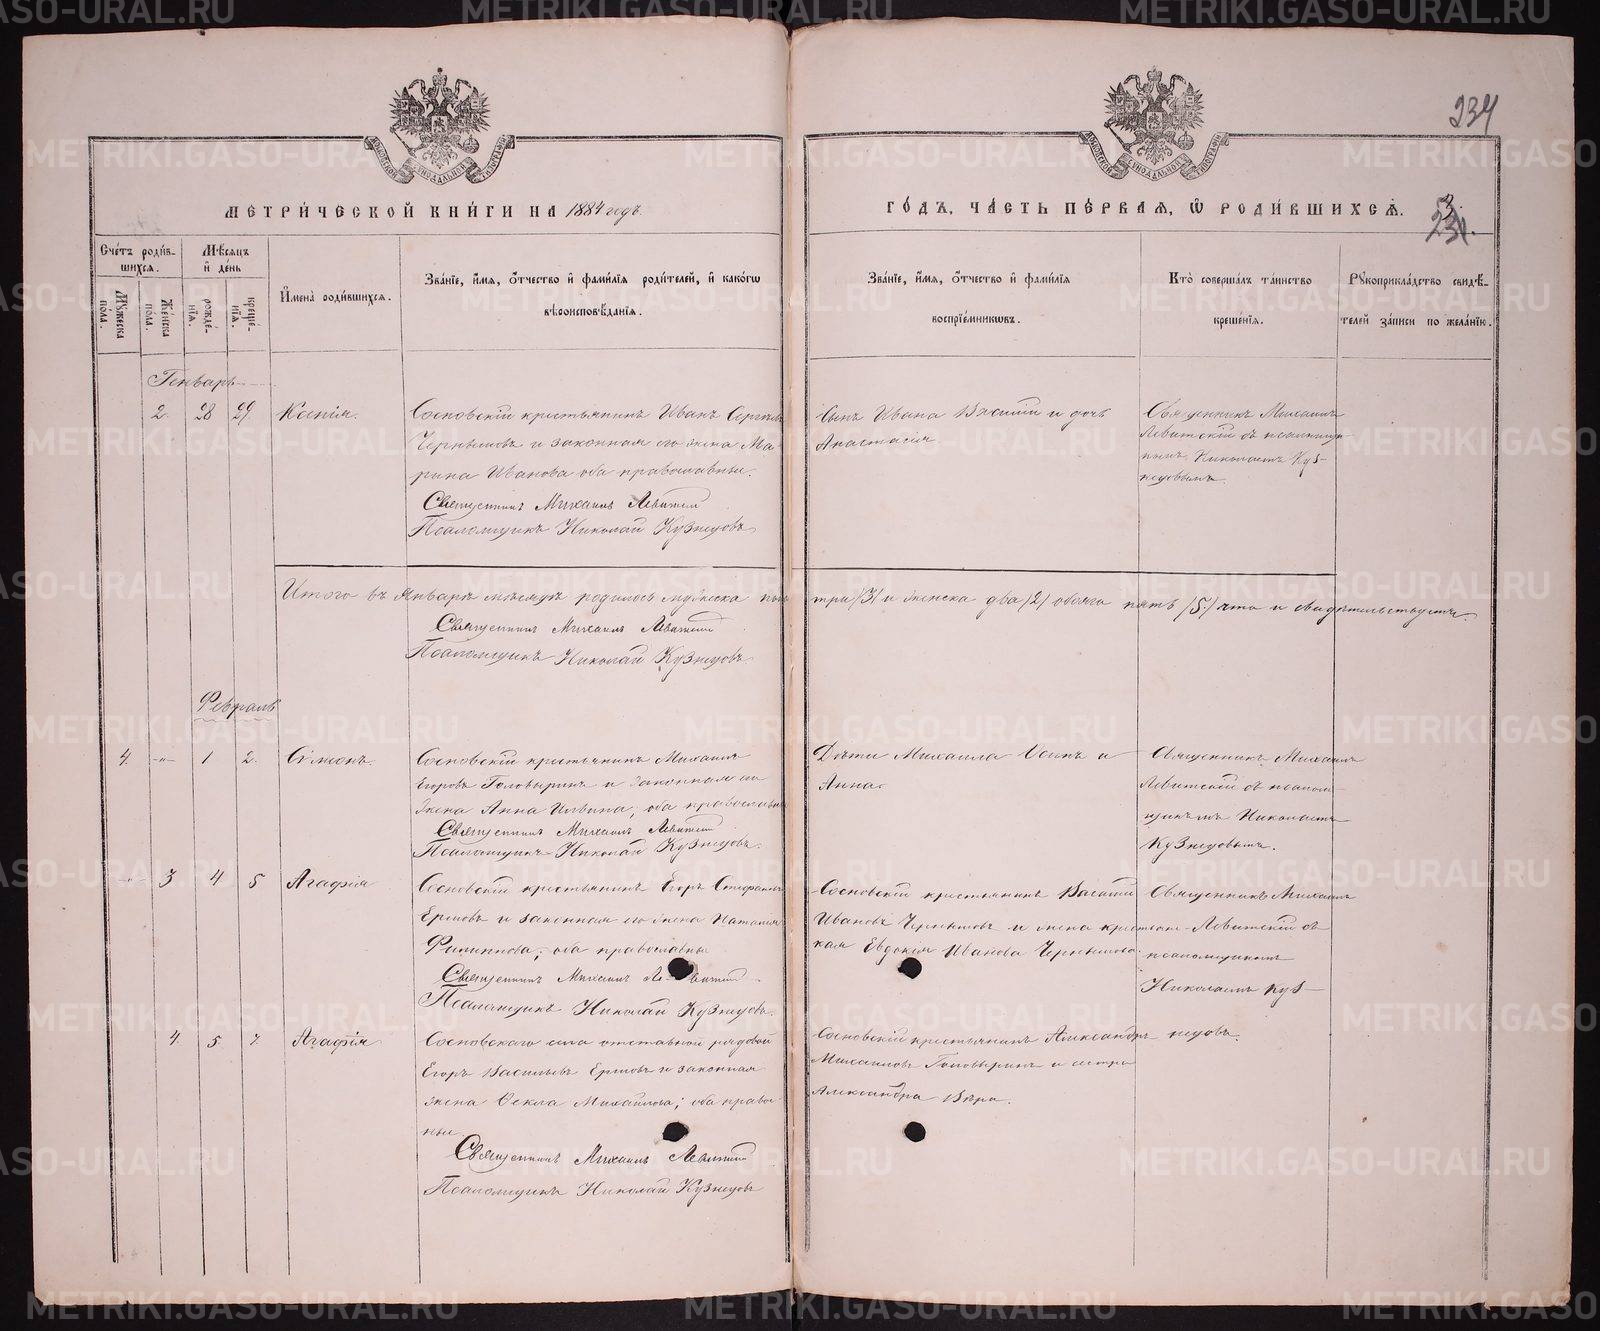 234
МЕТРИ́ЧЕСКОЙ КНИ́ГИ НА 1884 годъ.
ГО́ДЪ, ЧА́СТЬ ПЕ́РВАЯ, Ѡ҆ РОДИ́ВШИХСЯ.
Сче́тъ роди́в-
шихся.
Мꙋжеска пола.
Же́нска по́ла.
Мѣ́сяцъ
и҆ де́нь
рожде́-
нїя.
креще́-
нїя.
И҆мена̀ роди́вшихся.
Зва́нїе, и҆́мя, ѻ҆́тчество и҆ фами́лїя роди́телей, и҆ како́гѡ
вѣ́роисповѣ́данїя.
Зва́нїе, и҆́мя, ѻ҆́тчество и҆ фами́лїя
воспрїе́мникѡвъ.
Кто̀ соверша́лъ та́инство
креще́нїя.
Рꙋкоприкла́дство свидѣ́-
телей за́писи по жела́нїю.
Генварь
2. 28 29 Ксенія.
Сосновскій крестьянинъ Иванъ Сергѣевъ
Чернышовъ и законная его жена Ма
рина Иванова оба православные.
Священникъ Михаилъ Левитскій
Псаломщикъ Николай Кузнецовъ
Сынъ Ивана Василій и дочь
Анастасія
Священникъ Михаилъ
Левитскій съ псаломщи-
комъ Николаемъ Куз-
нецовымъ.
Итого въ Январѣ мѣсяцѣ родилось мужеска пола три /3/ и женска два /2/ обоего пять /5/ что и свидѣтельствуемъ.
Священникъ Михаилъ Левитскій
Псаломщикъ Николай Кузнецовъ
Февраль
4. -"- 1 2. Сѵмеонъ.
Сосновскій крестьянинъ Михаилъ
Егоровъ Головыринъ и законная его
жена Анна Ильина; оба православные
Священникъ Михаилъ Левитскій
Псаломщикъ Николай Кузнецовъ.
Дѣти Михаила Осипъ и
Анна.
Священникъ Михаилъ
Левитскій съ псалом-
щикомъ Николаемъ
Кузнецовымъ.
-"- 3 4 5 Агафія
Сосновскій крестьянинъ Егоръ Стефановъ
Ершовъ и законная его жена Наталія
Филиппова; оба православные
Священникъ Михаилъ Левитскій
Псаломщикъ Николай Кузнецовъ.
Сосновскій крестьянинъ Василій
Ивановъ Чернышовъ и жена крестьян-
кая Евдокія Иванова Чернышова.
Священникъ Михаилъ
Левитскій съ
псаломщикомъ
Николаемъ Куз-
нецовъ.
4. 5 7. Агафія
Сосновскаго села отставной рядовой
Егоръ Васильевъ Ершовъ и законная
жена Ѳекла Михайлова; оба правосл
ные
Священникъ Михаилъ Левитскій
Псаломщикъ Николай Кузнецовъ
Сосновскій крестьянинъ Александръ
Михаиловъ Головыринъ и сестра
Александра Вѣра.